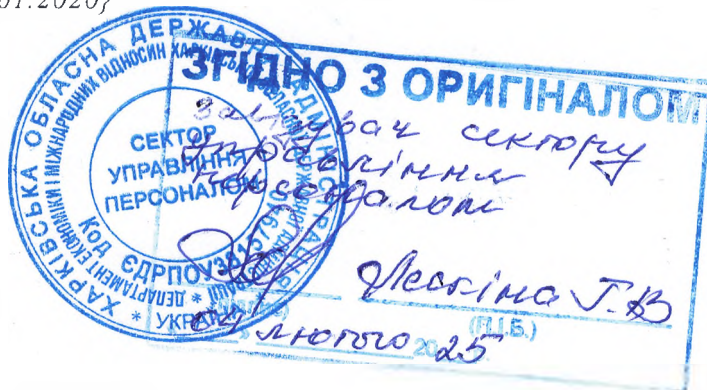 01.2020}
ХАРКІВСЬКА ОБЛАСНА ДЕРЖАВНА АДМІНІСТРАЦІЯ
* УКРАЇНА *
ДЕПАРТАМЕНТ ЕКОНОМІКИ І МІЖНАРОДНИХ ВІДНОСИН ХАРКІВСЬКОЇ ОБЛАСНОЇ
СЕКТОР
УПРАВЛІННЯ
ПЕРСОНАЛОМ
Код ЄДРПОУ
ЗГІДНО З ОРИГІНАЛОМ
завідувач сектору
управління
персоналом
Г.В
(П.І.Б.)
лютого 2025